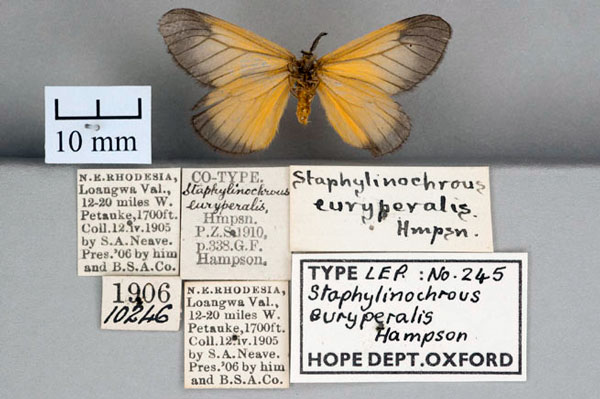 10 mm
N.E.RHODESIA,
Loangwa Val.,
12-20 miles W.
Petauke, 1700ft.
Coll.12.iv.1905
by S.A. Neave.
Pres.'06 by him
and B.S.A.Co.
CO-TYPE.
Staphylinochrous
euryperalis,
Hmpsn.
P.Z.S.1910,
p.338.G.F.
Hampson.
Staphylinochrous
euryperalis.
Hmpsn.
1906
10246
N.E.RHODESIA,
Loangwa Val.,
12-20 miles W.
Petauke, 1700ft.
Coll.12.iv.1905
by S.A. Neave.
Pres.'06 by him
and B.S.A.Co.
TYPE LEP. : No. 245
Staphylinochrous
euryperalis
Hampson
HOPE DEPT.OXFORD